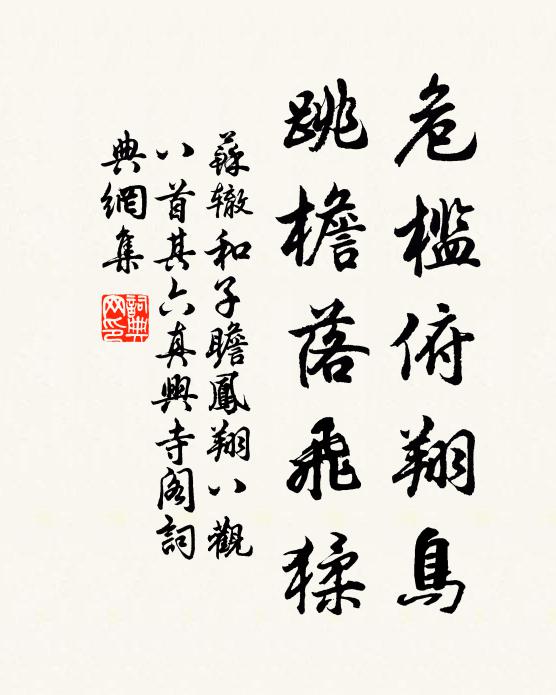 危檻俯翔鳥
跳檐落飛猱
蘇轍和子瞻鳳翔八觀
八首其六真興寺閣詞
典網集
詞典
网印